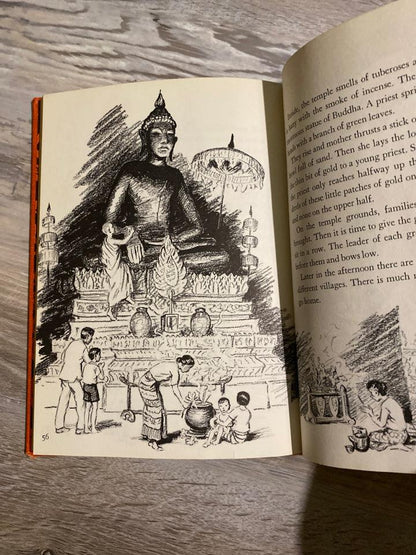 56
the temple smells of tuberoses a
with the smoke of incense. Th
statue of Buddha. A priest spri
with a branch of green leaves.
They rise and mother thrusts a stick o
full of sand. Then she lays the
bit of gold to a young priest. S
only reaches halfway up th
of these little patches of gold on
none on the upper half.
On the temple grounds, families
Then it is time to give the
in a row. The leader of each gr
before them and bows low.
Later in the afternoon there are
different villages. There is much
go home.